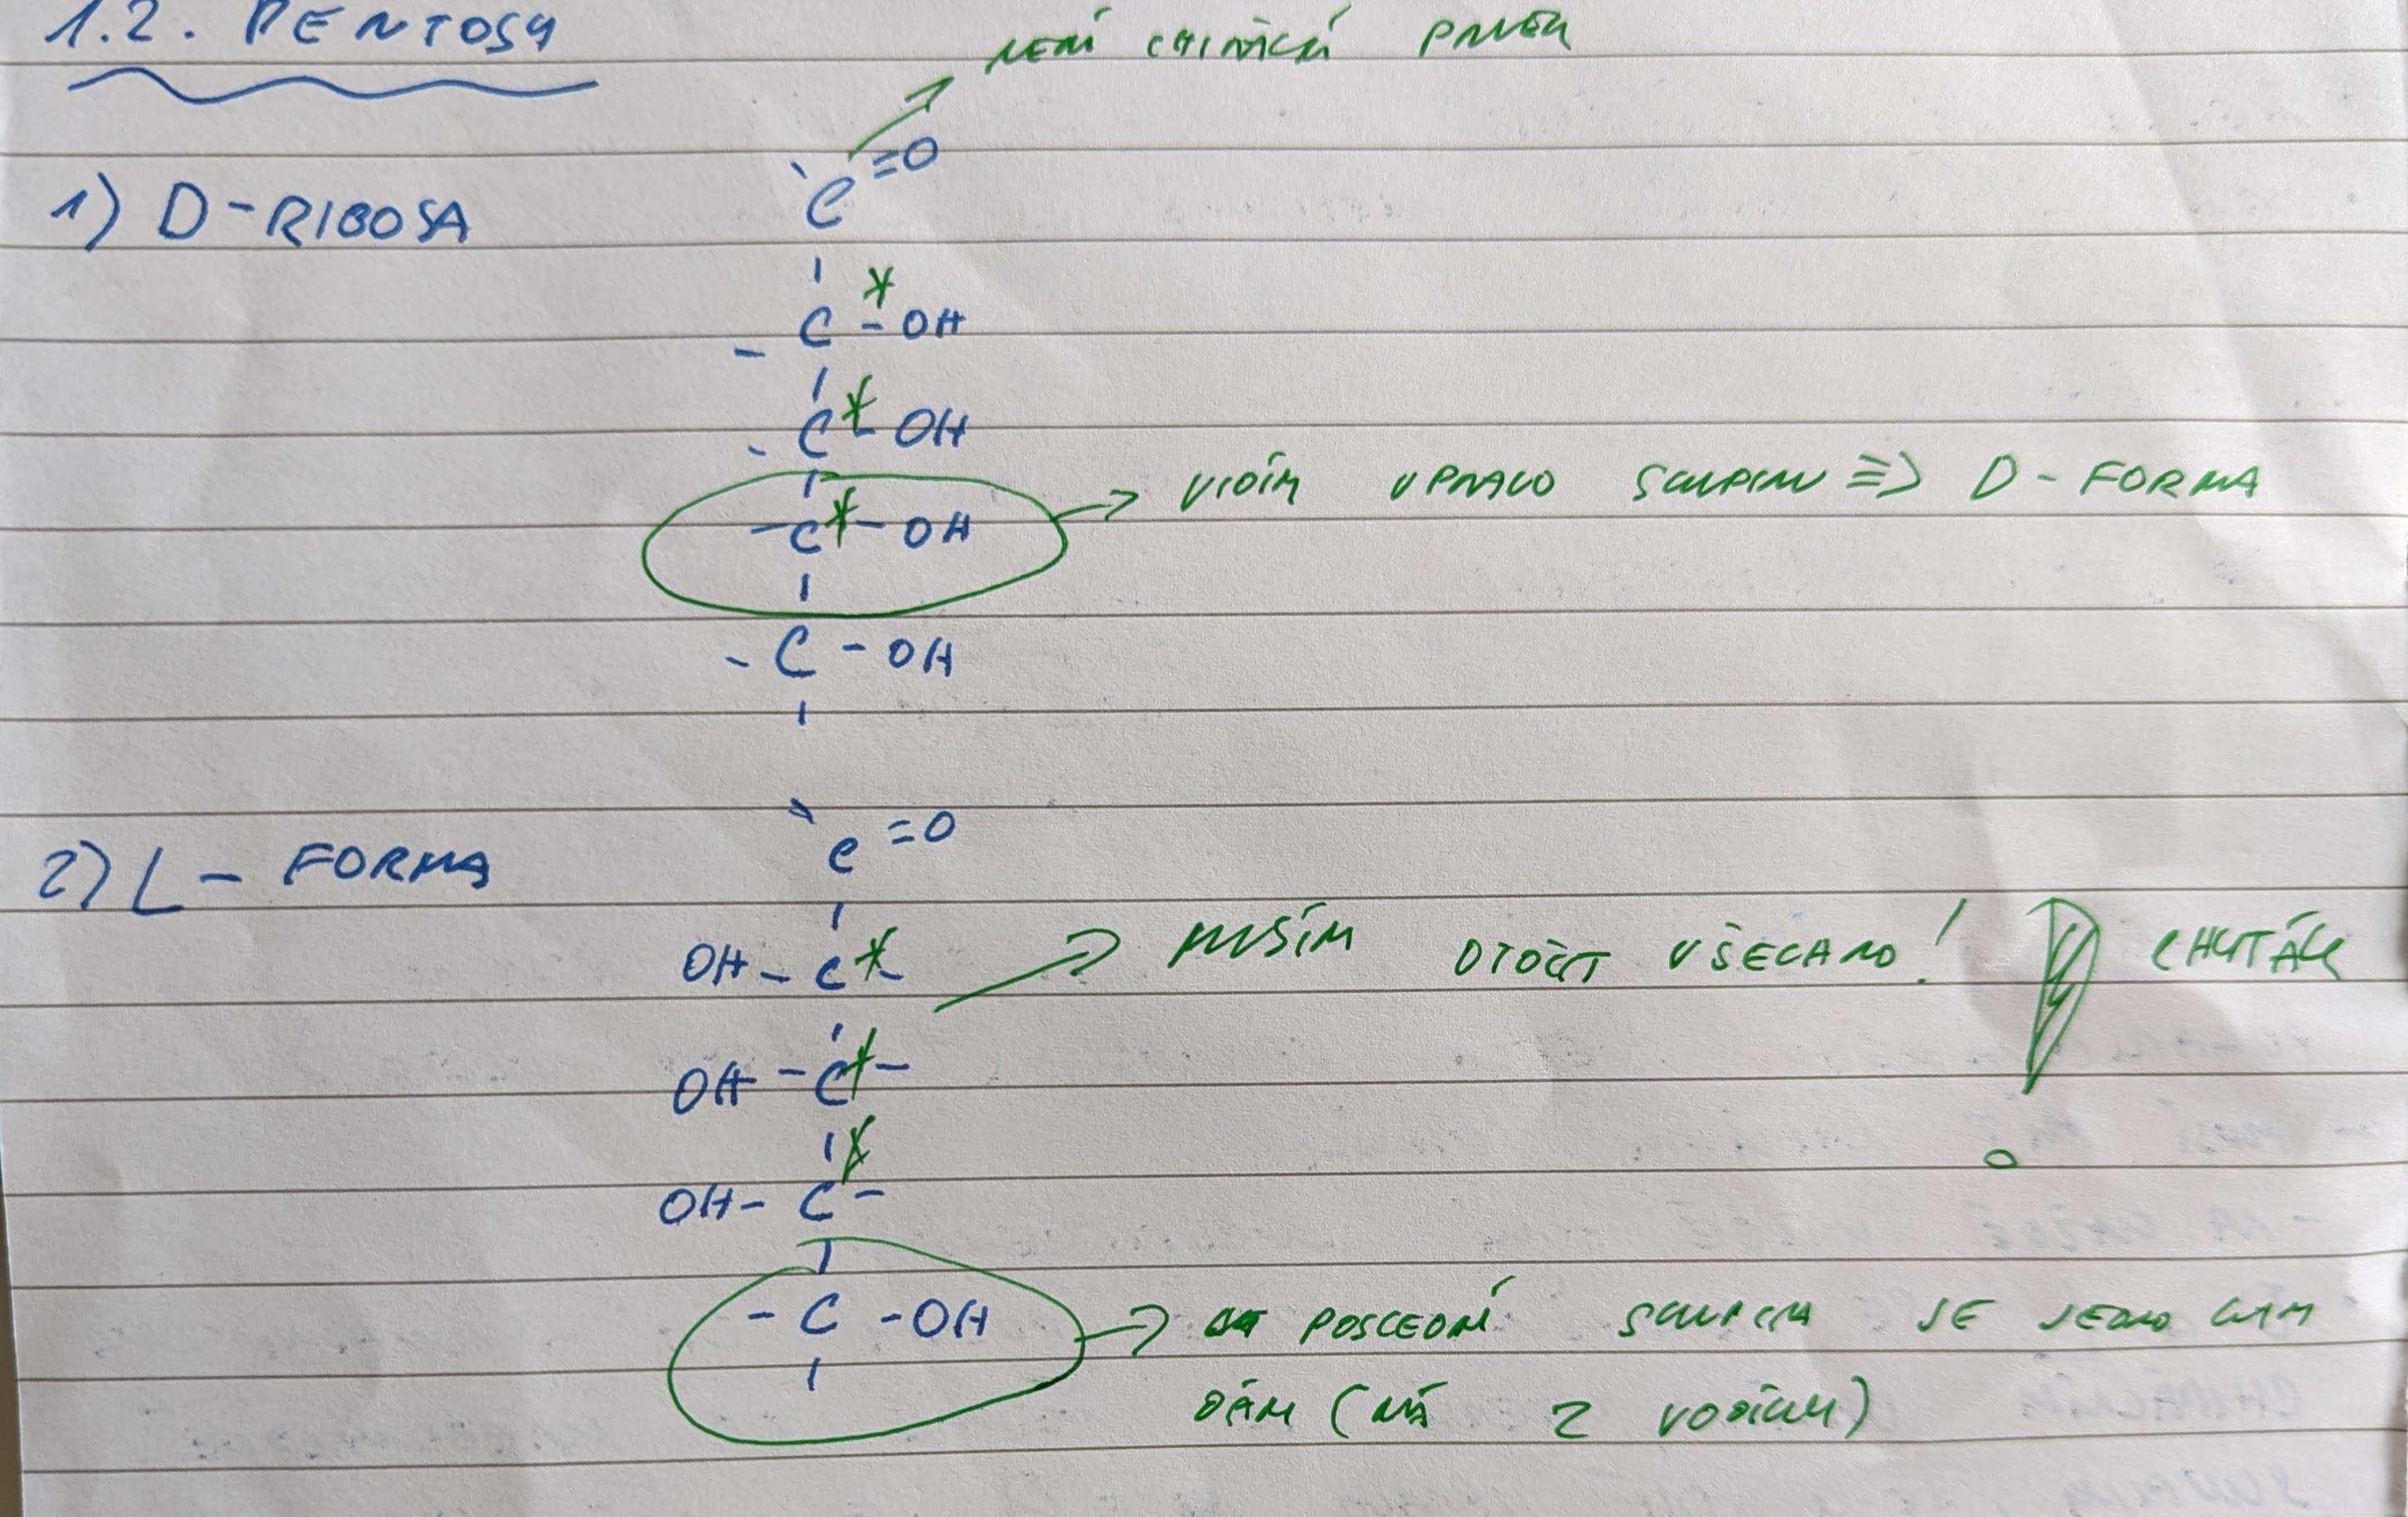 1.2. PENTOSY
NENÍ CHIRÁLNÍ PRVEK
1) D-RIBOSA
C=O
C*-OH
-
C*-OH
-
-C*-OH
VIDÍM VPRAVO SKUPINU => D-FORMA
-C-OH
2) L-FORMA
C=O
OH-C*-
MUSÍM OTOČIT VŠECHNO! ! CHYTÁK
OH-C*-
OH-C*-
-C-OH
POSLEDNÍ SKUPINA JE JEDNO KAM
DÁM (MÁ 2 VODÍKY)